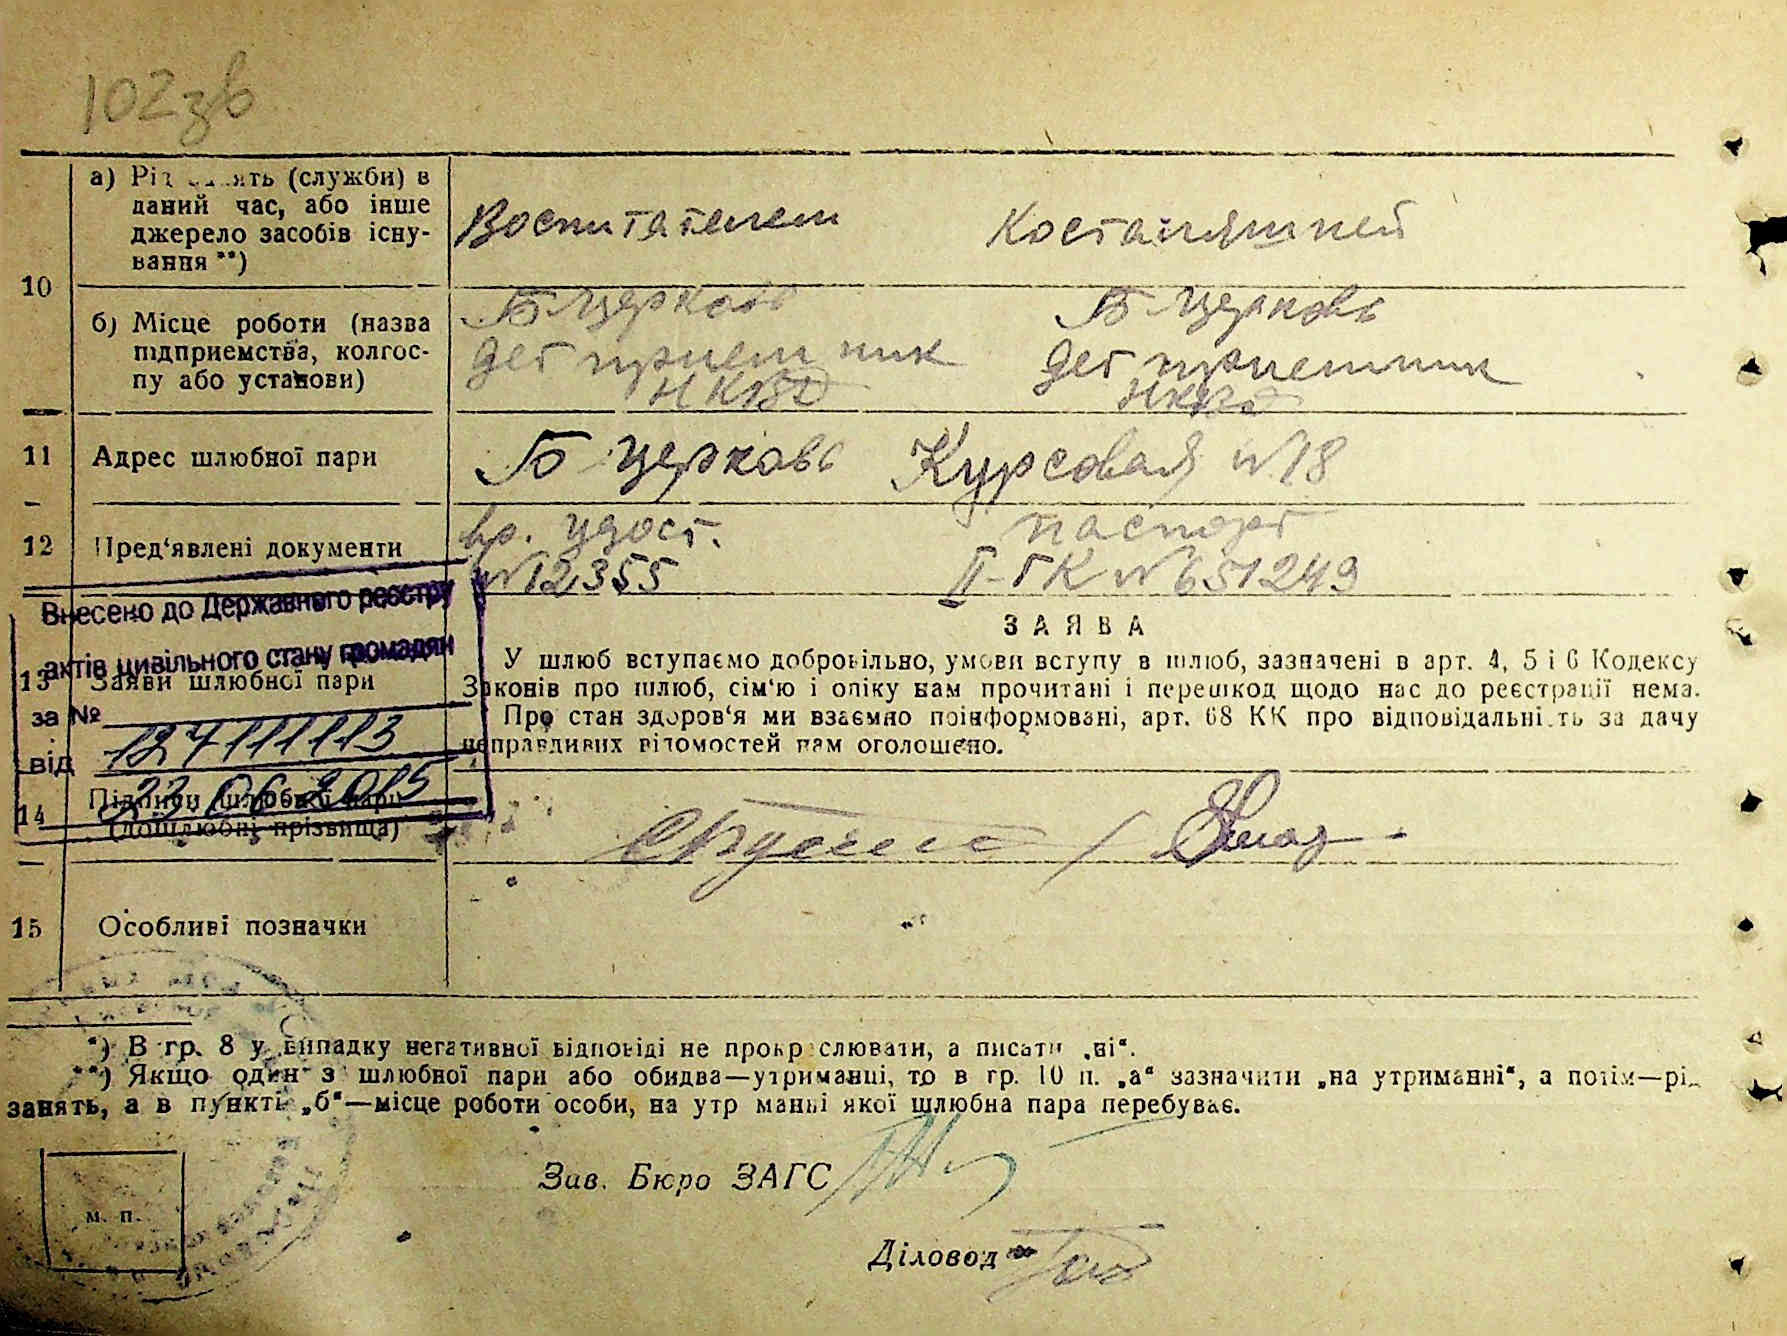 102зв
а) Рід занять (служби) в
даний час, або інше
джерело засобів існу-
вання **)
Воспитателем Костаняшней
10
б) Місце роботи (назва
підприємства, колгос-
пу або установи)
Б Церковь Б Церковь
Дет приемник Дет приемник
НКВД НКВД
11 Адрес шлюбної пари Б Церковь Курсовая №18
12 Пред'явлені документи вр. удост. паспорт
№12355 II-ГК №651249
Внесено до Державного реєстру
актів цивільного стану громадян
за №
127111113
від 23.06.2015
ЗАЯВА
13 Заяви шлюбної пари
У шлюб вступаємо добровільно, умови вступу в шлюб, зазначені в арт. 4, 5 і 6 Кодексу
Законів про шлюб, сім'ю і опіку нам прочитані і перешкод щодо нас до реєстрації нема.
Про стан здоров'я ми взаємно поінформовані, арт. 68 КК про відповідальність за дачу
неправдивих відомостей нам оголошено.
14 Підписи шлюбної пари
(дошлюбні прізвища)
15 Особливі позначки
*) В гр. 8 у випадку негативної відповіді не прокреслювати, а писати „ні“.
**) Якщо один з шлюбної пари або обидва—утриманці, то в гр. 10 п. „а“ зазначити „на утриманні“, а потім—рід
занять, а в пункті „б“—місце роботи особи, на утриманні якої шлюбна пара перебуває.
Зав. Бюро ЗАГС
м. п.
Діловод